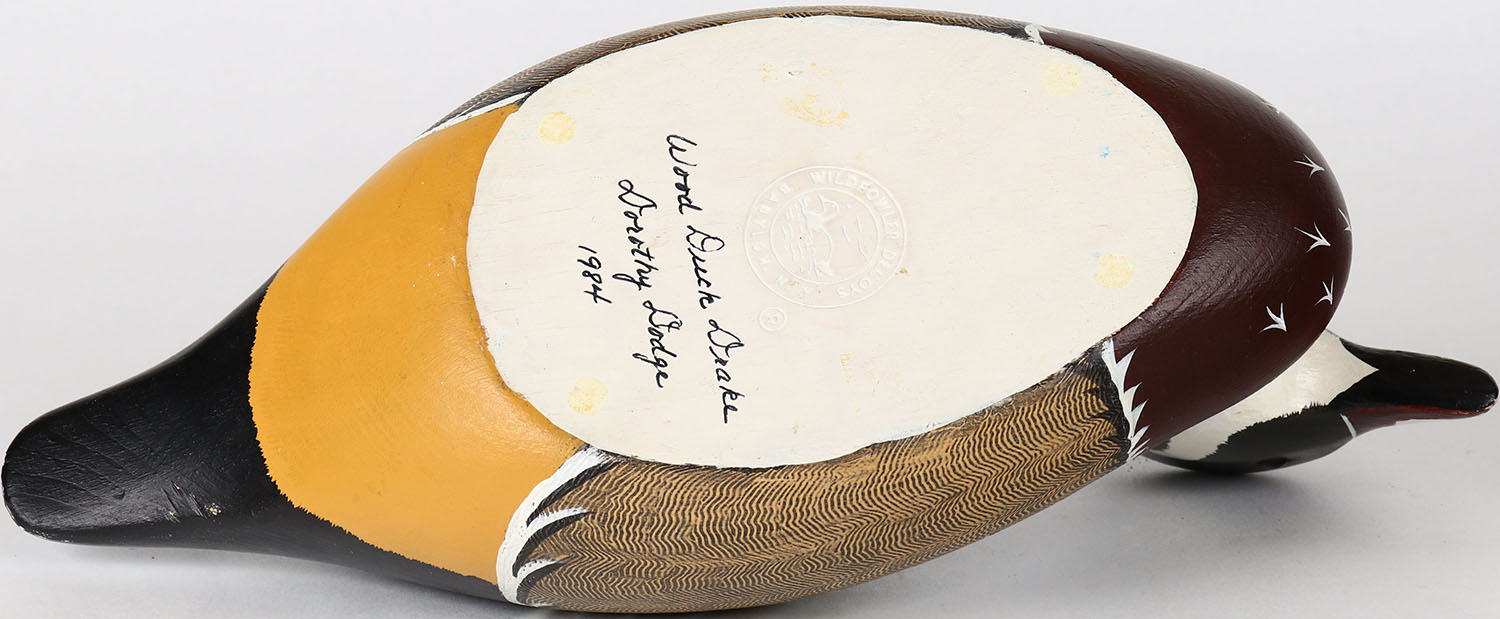 Wood Duck Drake
Dorothy Dodge
1984
WILDFOWLER DECOYS
BABYLON N.Y.
®